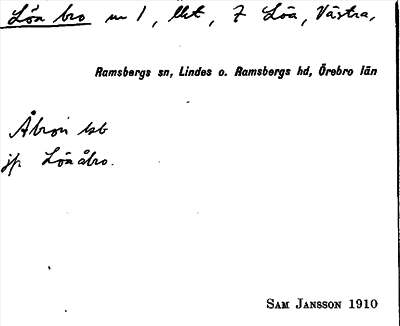 Löa bro m 1, Ukt, 7 Löa, Västra,
Ramsbergs sn, Lindes o. Ramsbergs hd, Örebro län
Åbron
jfr Löaåbro.
SAM JANSSON 1910